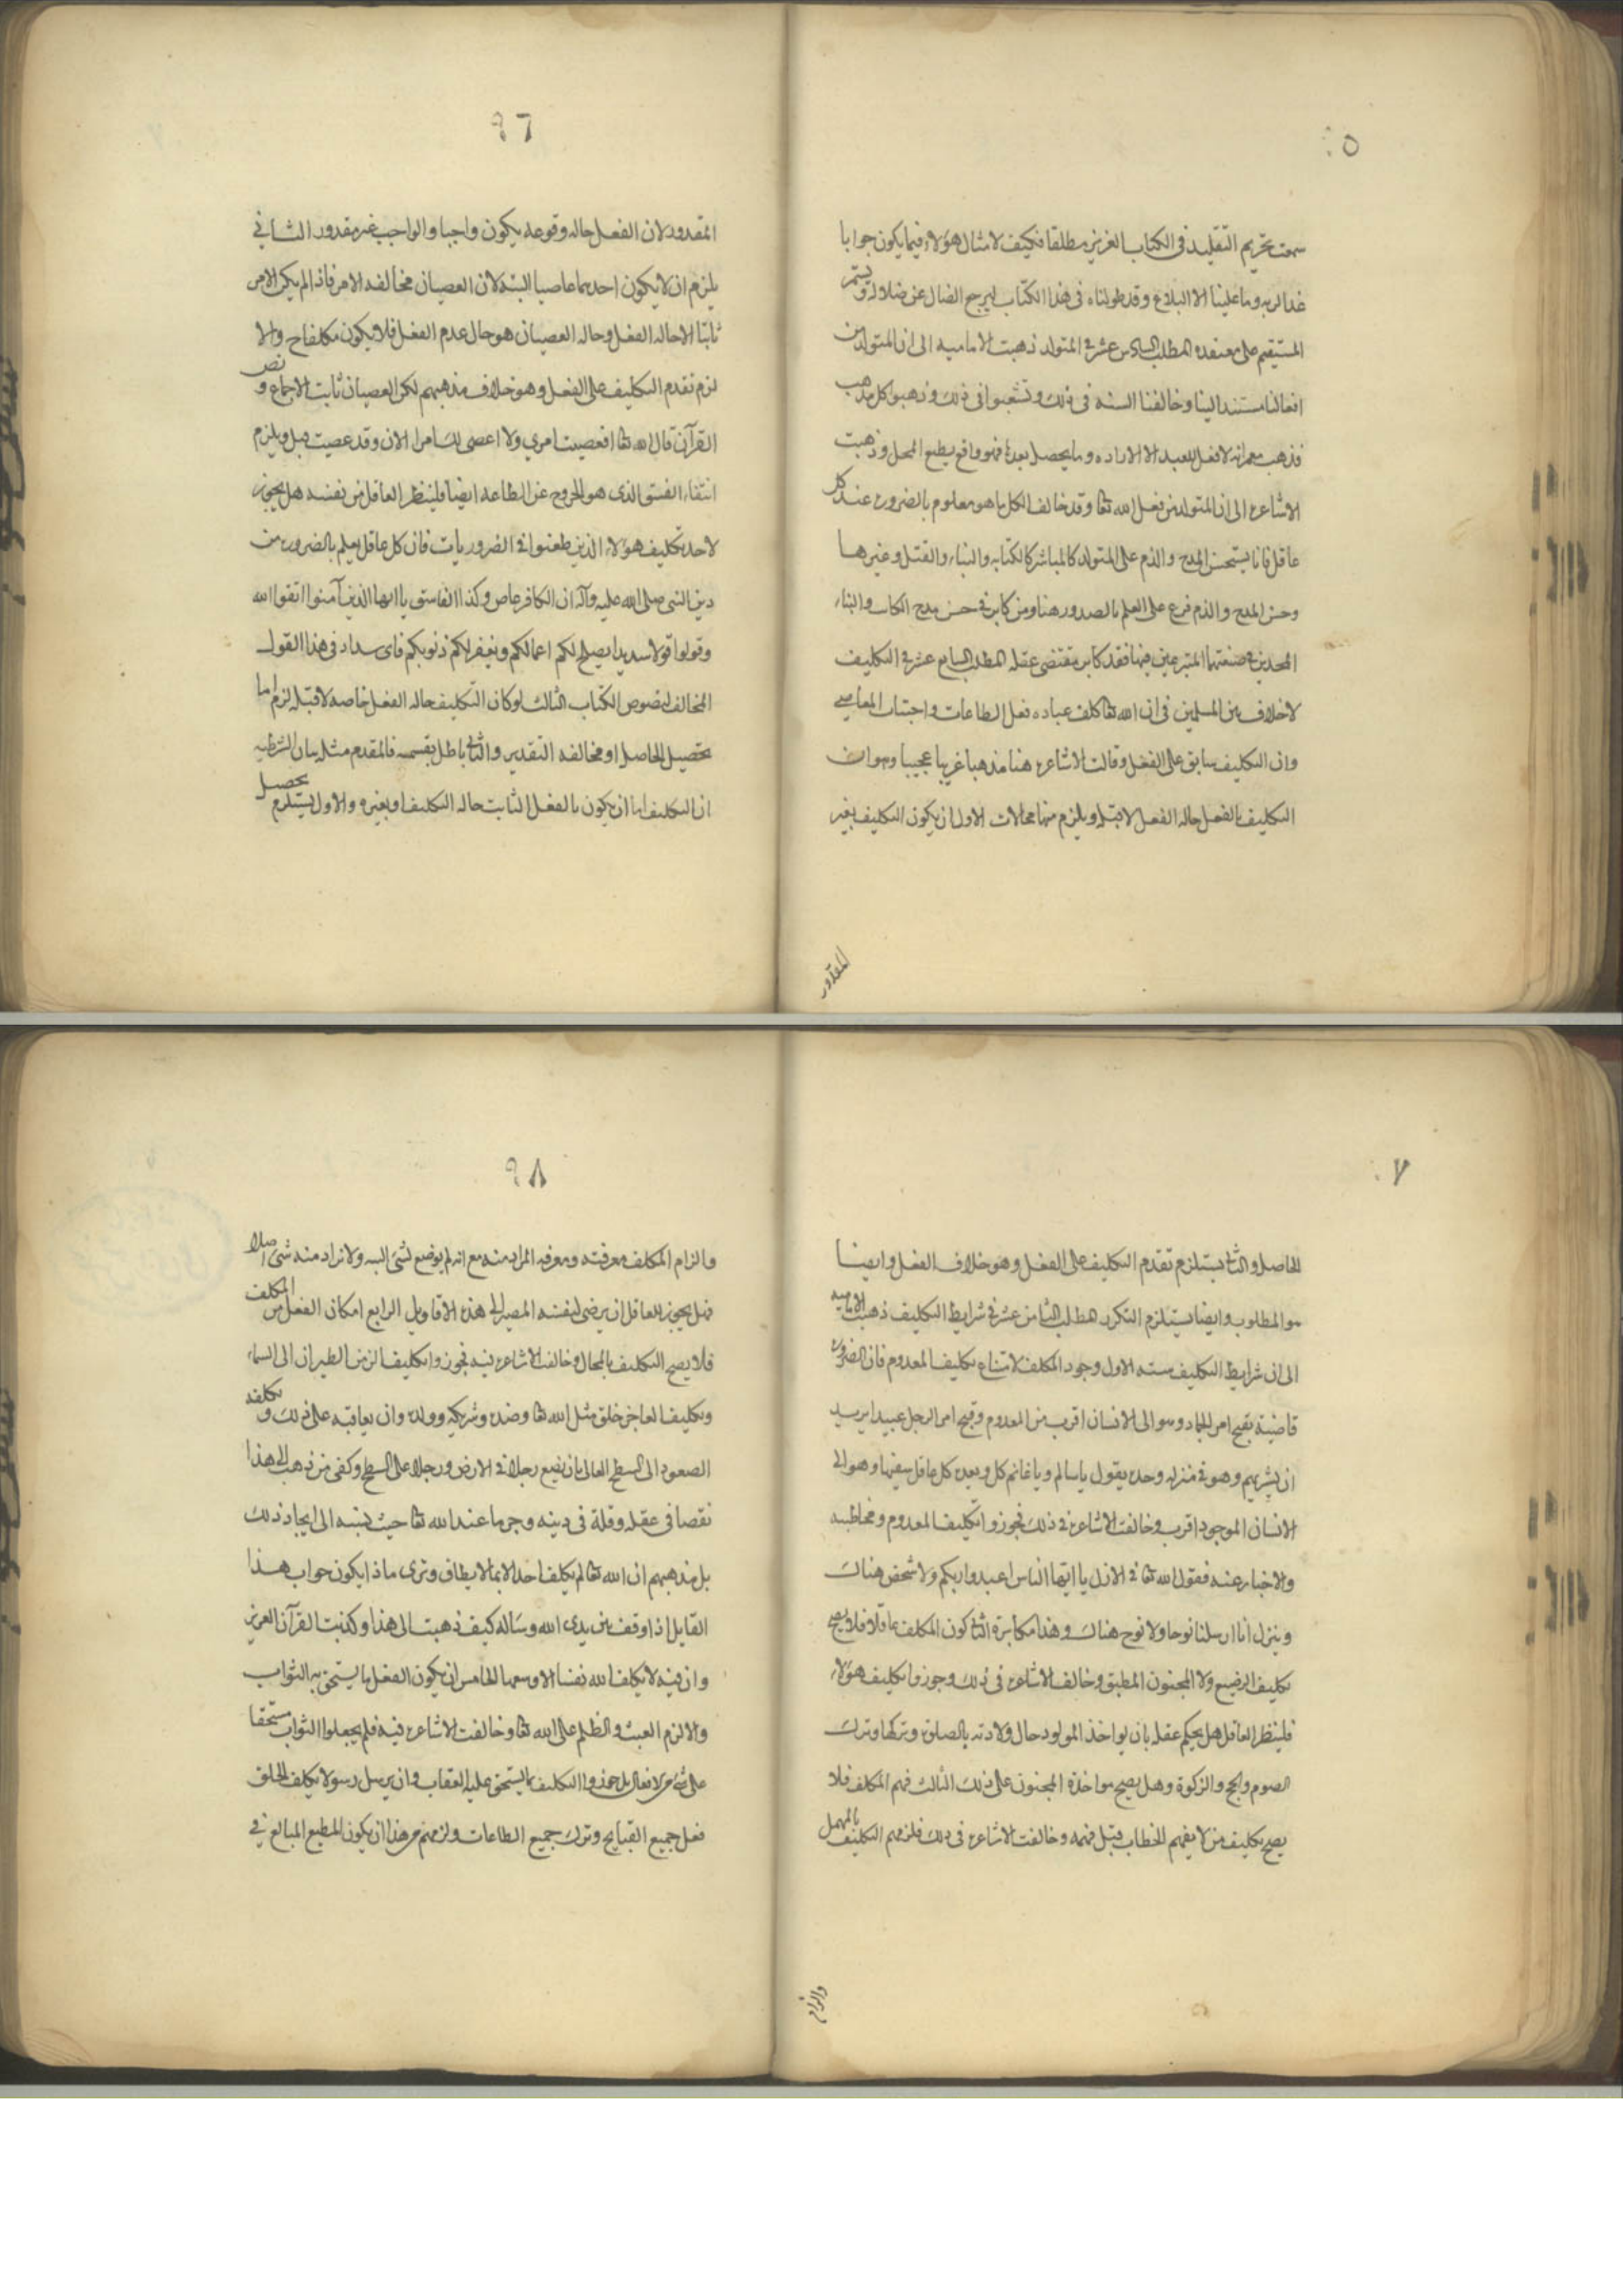 ٥
سمعت تحريم التقليد في الكتاب العزيز مطلقا فكيف لامثال هؤلاء فيما يكون جوابا
غدا لربه وما علينا الا البلاغ وقد طولنا في هذا الكتاب ليرجع الضال عن ضلاله ويستمر
المستقيم على معتقده المطلب السادس عشر في المتولد ذهبت الاماميه الى ان المتولد من
افعالنا مستند الينا وخالفنا السنه في ذلك وتشعبوا في ذلك وذهبوا كل مذهب
فذهب معمر انه لا فعل للعبد الا الاراده وما يحصل بعدها فهو واقع بطبع المحل وذهبت
الاشاعره الى ان المتولد من فعل الله تعا وقد خالف الكل ما هو معلوم بالضروره عند كل
عاقل فانا يستحسن المدح والذم على المتولد كالمباشر كالكتابه والبناء والقتل وغيرها
وحسن المدح والذم فرع على العلم بالصدور هنا ومن كابر في حسن مدح الكاتب والبناء
المجدين في صنعتهما المتبرعين فيها فقد كابر مقتضى عقله المطلب السابع عشر في التكليف
لا خلاف بين المسلمين في ان الله تعا كلف عباده فعل الطاعات واجتناب المعاصي
وان التكليف سابق على الفعل وقالت الاشاعره هنا مذهبا غريبا عجيبا وهو ان
التكليف بالفعل حاله الفعل لا قبله ويلزم منها محالات الاول ان يكون التكليف بغير
المقدور
٩٦
المقدور لان الفعل حاله وقوعه يكون واجبا والواجب غير مقدور الثاني
يلزم ان لا يكون احدهما عاصيا البته لان العصيان مخالفه الامر فاذا لم يكن الامر
ثابتا الا حاله الفعل وحاله العصيان هو حال عدم الفعل فلا يكون مكلفا ح والا
لزم تقدم التكليف على الفعل وهو خلاف مذهبهم لكن العصيان ثابت بالاجماع و نص
القرآن قال الله تعا افعصيت امري ولا اعصى لك امرا الان وقد عصيت قبل ويلزم
انتفاء الفسق الذى هو الخروج عن الطاعه ايضا فلينظر العاقل من نفسه هل يجوز
لاحد تكليف هؤلاء الذين طعنوا في الضروريات فان كل عاقل يعلم بالضروره من
دين النبى صلى الله عليه وآله ان الكافر عاص وكذا الفاسق يا ايها الذين آمنوا اتقوا الله
وقولوا قولا سديدا يصلح لكم اعمالكم ويغفر لكم ذنوبكم فاى سداد في هذا القول
المخالف لنصوص الكتاب الثالث لو كان التكليف حاله الفعل خاصه لا قبله لزم اما
تحصيل الحاصل او مخالفه التقدير والتالي باطل بقسميه فالمقدم مثله بيان الشرطيه
ان التكليف اما ان يكون بالفعل الثابت حاله التكليف او بغيره والاول يستلزم تحصيل
٧
الحاصل والثاني يستلزم تقدم التكليف على الفعل وهو خلاف الفعل وايضا
هو المطلوب وايضا يستلزم التكرر المطلب الثامن عشر في شرايط التكليف ذهبت الاماميه
الى ان شرايط التكليف سته الاول وجود المكلف لامتناع تكليف المعدوم فان الضروره
قاضية بقبح امر الجماد وهو الى الانسان اقرب من المعدوم وقبح امر الرجل عبيدا يريد
ان يشريهم وهو في منزله وحده يقول يا سالم ويا غانم كل ويعده كل عاقل سفيها وهو الى
الانسان الموجود اقرب وخالفت الاشاعره في ذلك فجوزوا تكليف المعدوم ومخاطبته
والاخبار عنه فيقول الله تعا في الازل يا ايها الناس اعبدوا ربكم ولا شخص هناك
وينزل انا ارسلنا نوحا ولا نوح هناك وهذا مكابرة الثاني كون المكلف عاقلا فلا يصح
تكليف الرضيع ولا المجنون المطبق وخالفت الاشاعره في ذلك وجوزوا تكليف هؤلاء
فلينظر العاقل هل يحكم عقله بان يواخذ المولود حال ولادته بالصلوة وتركها وترك
الصوم والحج والزكوة وهل يصح مواخذة المجنون على ذلك الثالث فهم المكلف فلا
يصح تكليف من لا يفهم الخطاب قبل فهمه وخالفت الاشاعره في ذلك فلزمهم التكليف بالمهمل
والزام
٩٨
والزام المكلف معرفته ومعرفه المراد منه مع انه لم يوضع لشئ البته ولا يراد منه شئ اصلا
فهل يجوز للعاقل ان يرضى لنفسه المصير الى هذه الاقاويل الرابع امكان الفعل من المكلف
فلا يصح التكليف بالمحال وخالفت الاشاعره فيه فجوزوا تكليف الزمن الطيران الى السماء
وتكليف العاجز خلق مثل الله تعا وضده وشريكه وولده وان يعاقبه على ذلك و تكليفه
الصعود الى السطح العالي بان يضع رجلا في الارض ورجلا على السطح وكفى من ذهب الى هذا
نقصا في عقله وقلة في دينه وجرما عند الله تعا حيث نسبه الى ايجاد ذلك
بل مذهبهم ان الله تعا لم يكلف احدا الا بما لا يطاق وترى ماذا يكون جواب هذا
القايل اذا وقف بين يدى الله وساله كيف ذهبت الى هذا وكذبت القرآن العزيز
وان فيه لا يكلف الله نفسا الا وسعها الخامس ان يكون الفعل ما يستحق به الثواب
والا لزم العبث والظلم على الله تعا وخالفت الاشاعره فيه فلم يجعلوا الثواب مستحقا
على شئ من الافعال بل جوزوا التكليف بما يستحق عليه العقاب وان يرسل رسولا يكلف الخلق
فعل جميع القبايح وترك جميع الطاعات ولزمهم من هذا ان يكون المطيع المبالغ في